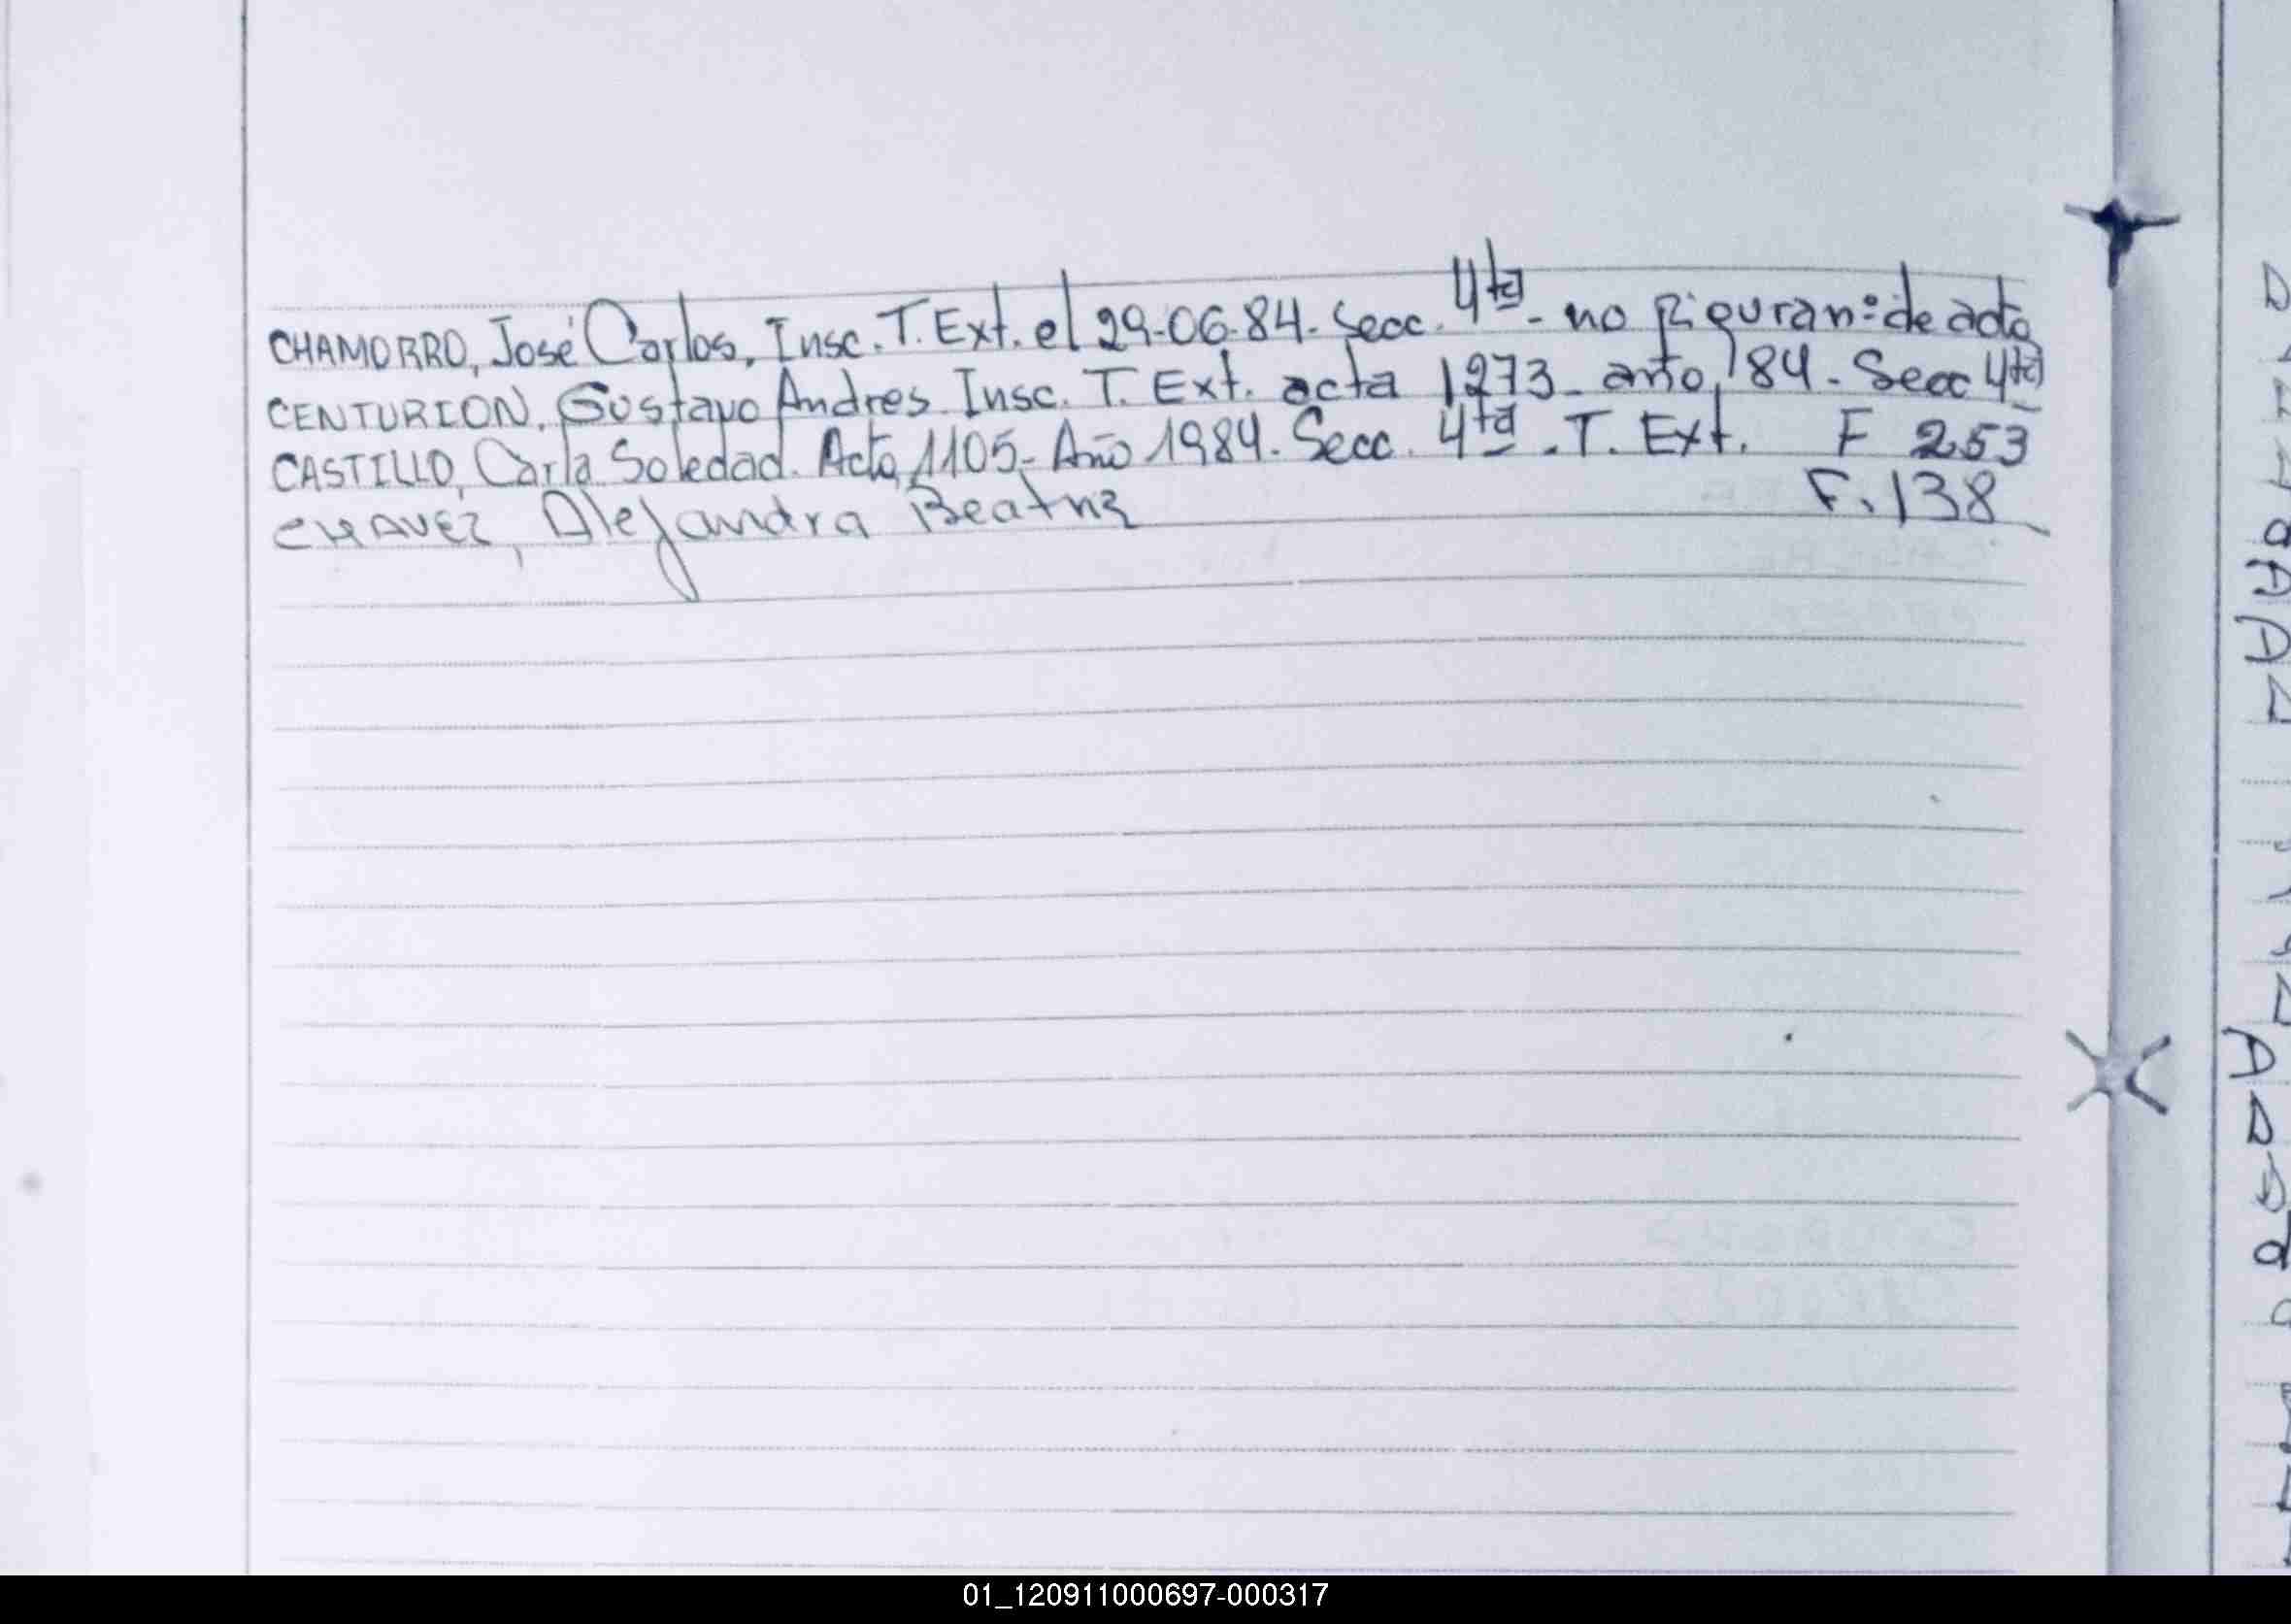 CHAMORRO, José Carlos, Insc. T. Ext. el 29-06-84. Secc. 4ta - no figura nº de acta
CENTURION, Gustavo Andres Insc. T. Ext. acta 1273 - año 84 - Secc 4ta
CASTILLO, Carla Soledad. Acta 1105 - Año 1984. Secc. 4ta - T. Ext. F 253
CHAVEZ, Alejandra Beatriz F. 138
01_120911000697-000317